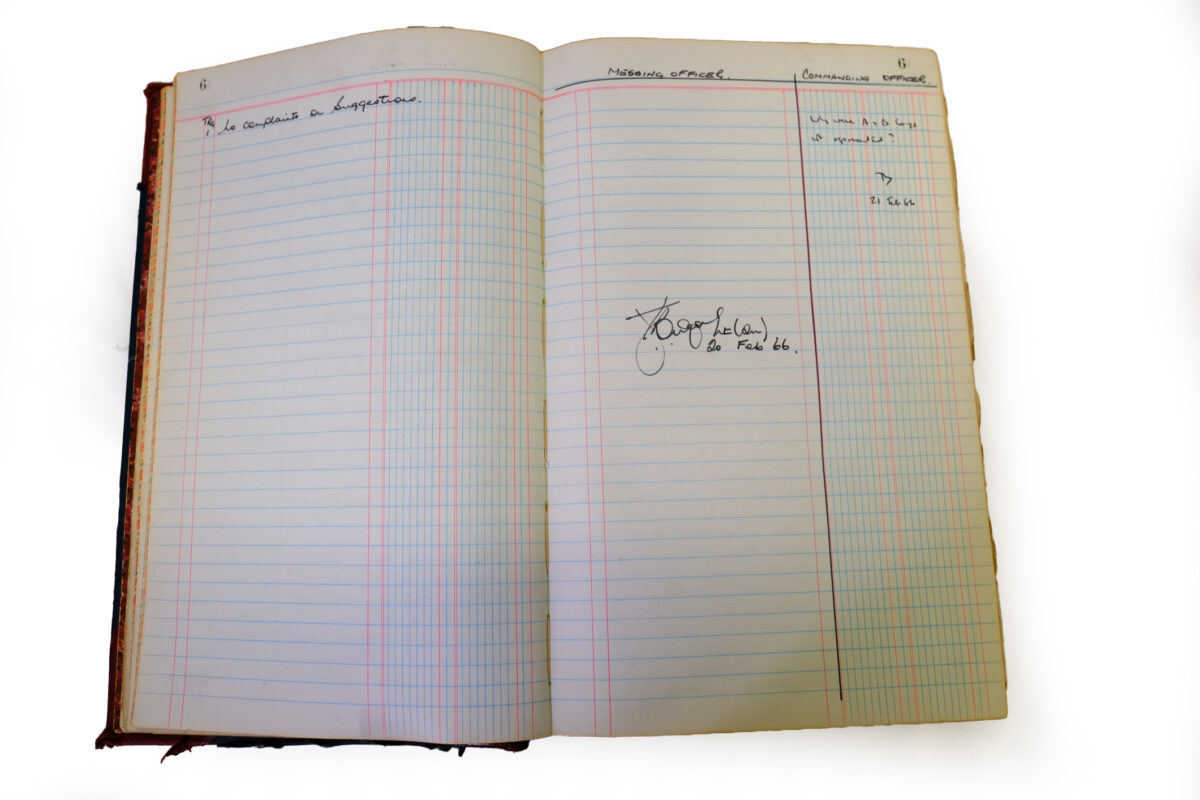 6
No complaints or Suggestions.
6
MESSING OFFICER.
COMMANDING OFFICER.
Why were A + D Coys
not represented?
21 Feb 66
Lt (QM)
20 Feb 66.